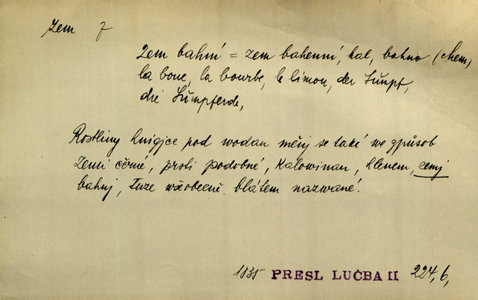 Zem f
Zem bahní = zem bahenní, kal, bahno (chem,
la boue, la bourbe, le limon, der Sumpf,
die Sumpferde,
Rostliny hnigjce pod wodau měnj se také we způsob
zemi černé, prsti podobné, kalowinau, slemem, zemj
bahnj, tuze wšobecně blátem nazwané.
1835 PRESL LUČBA II 224,6,